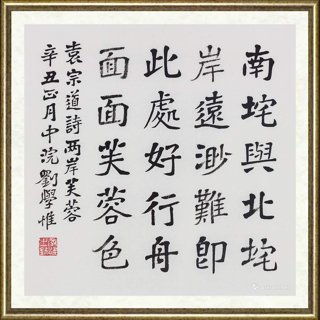 南垞與北垞
岸遠渺難即
此處好行舟
面面芙蓉色
袁宗道詩兩岸芙蓉
辛丑正月中浣劉學惟